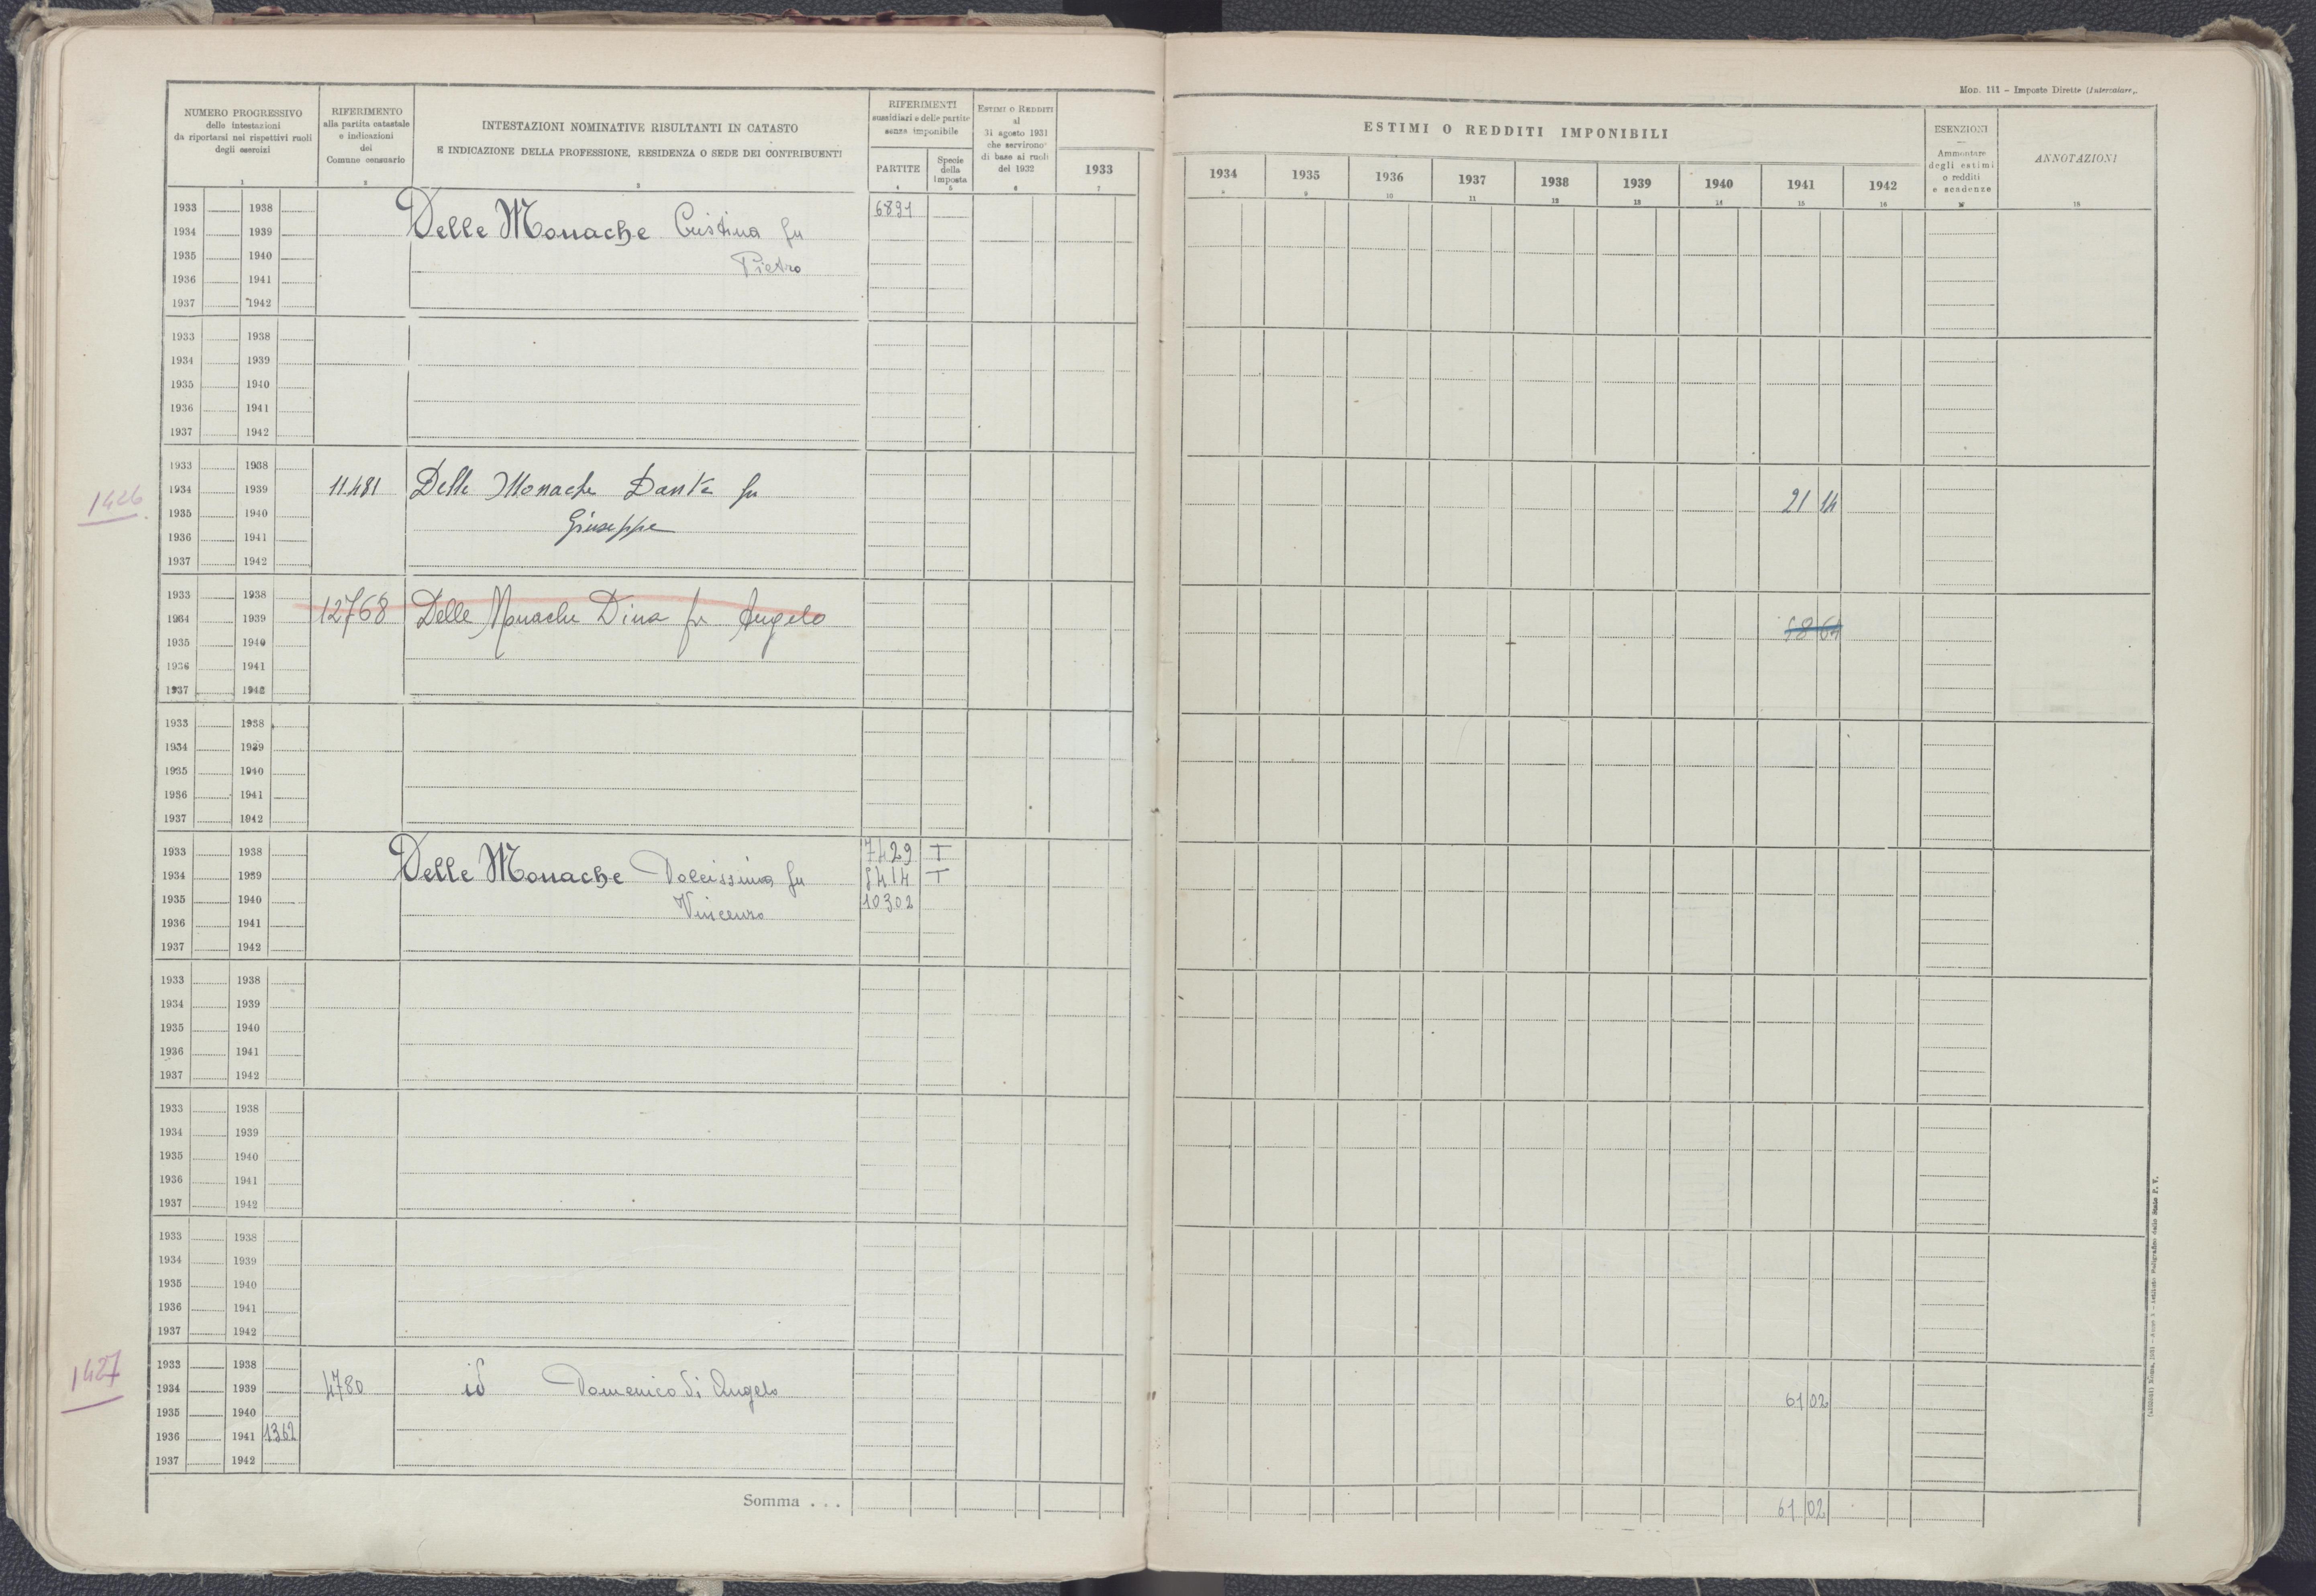 Mod. 111 – Imposte Dirette (Intercalare).
NUMERO PROGRESSIVO
delle intestazioni
da riportarsi nei rispettivi ruoli
degli esercizi
1
RIFERIMENTO
alla partita catastale
e indicazioni
del
Comune censuario
2
INTESTAZIONI NOMINATIVE RISULTANTI IN CATASTO
E INDICAZIONE DELLA PROFESSIONE, RESIDENZA O SEDE DEI CONTRIBUENTI
3
RIFERIMENTI
sussidiari e delle partite
senza imponibile
PARTITE
4
Specie
della
imposta
5
ESTIMI O REDDITI
al
31 agosto 1931
che servirono
di base ai ruoli
del 1932
6
1933
7
ESTIMI O REDDITI IMPONIBILI
1934 1935 1936 1937 1938 1939 1940 1941 1942
9 10 11 12 13 14 15 16
ESENZIONI
—
Ammontare
degli estimi
o redditi
e scadenze
ANNOTAZIONI
18
1933 1938 Delle Monache Cristina fu 6891
1934 1939
1935 1940 Pietro
1936 1941
1937 1942
1933 1938
1934 1939
1935 1940
1936 1941
1937 1942
1933 1938
1426 1934 1939 11481 Delle Monache Dante fu 21 14
1935 1940 Giuseppe
1936 1941
1937 1942
1933 1938
1934 1939 12768 Delle Monache Dina fu Angelo 18 64
1935 1940
1936 1941
1937 1942
1933 1938
1934 1939
1935 1940
1936 1941
1937 1942
1933 1938 7429 T
1934 1939 Delle Monache Dolcissima fu 8414 T
1935 1940 Vincenzo 10302
1936 1941
1937 1942
1933 1938
1934 1939
1935 1940
1936 1941
1937 1942
1933 1938
1934 1939
1935 1940
1936 1941
1937 1942
1933 1938
1934 1939
1935 1940
1936 1941
1937 1942
1427 1933 1938
1934 1939 4780 id Domenico di Angelo 61 02
1935 1940
1936 1941 1362
1937 1942
Somma . . . 61 02